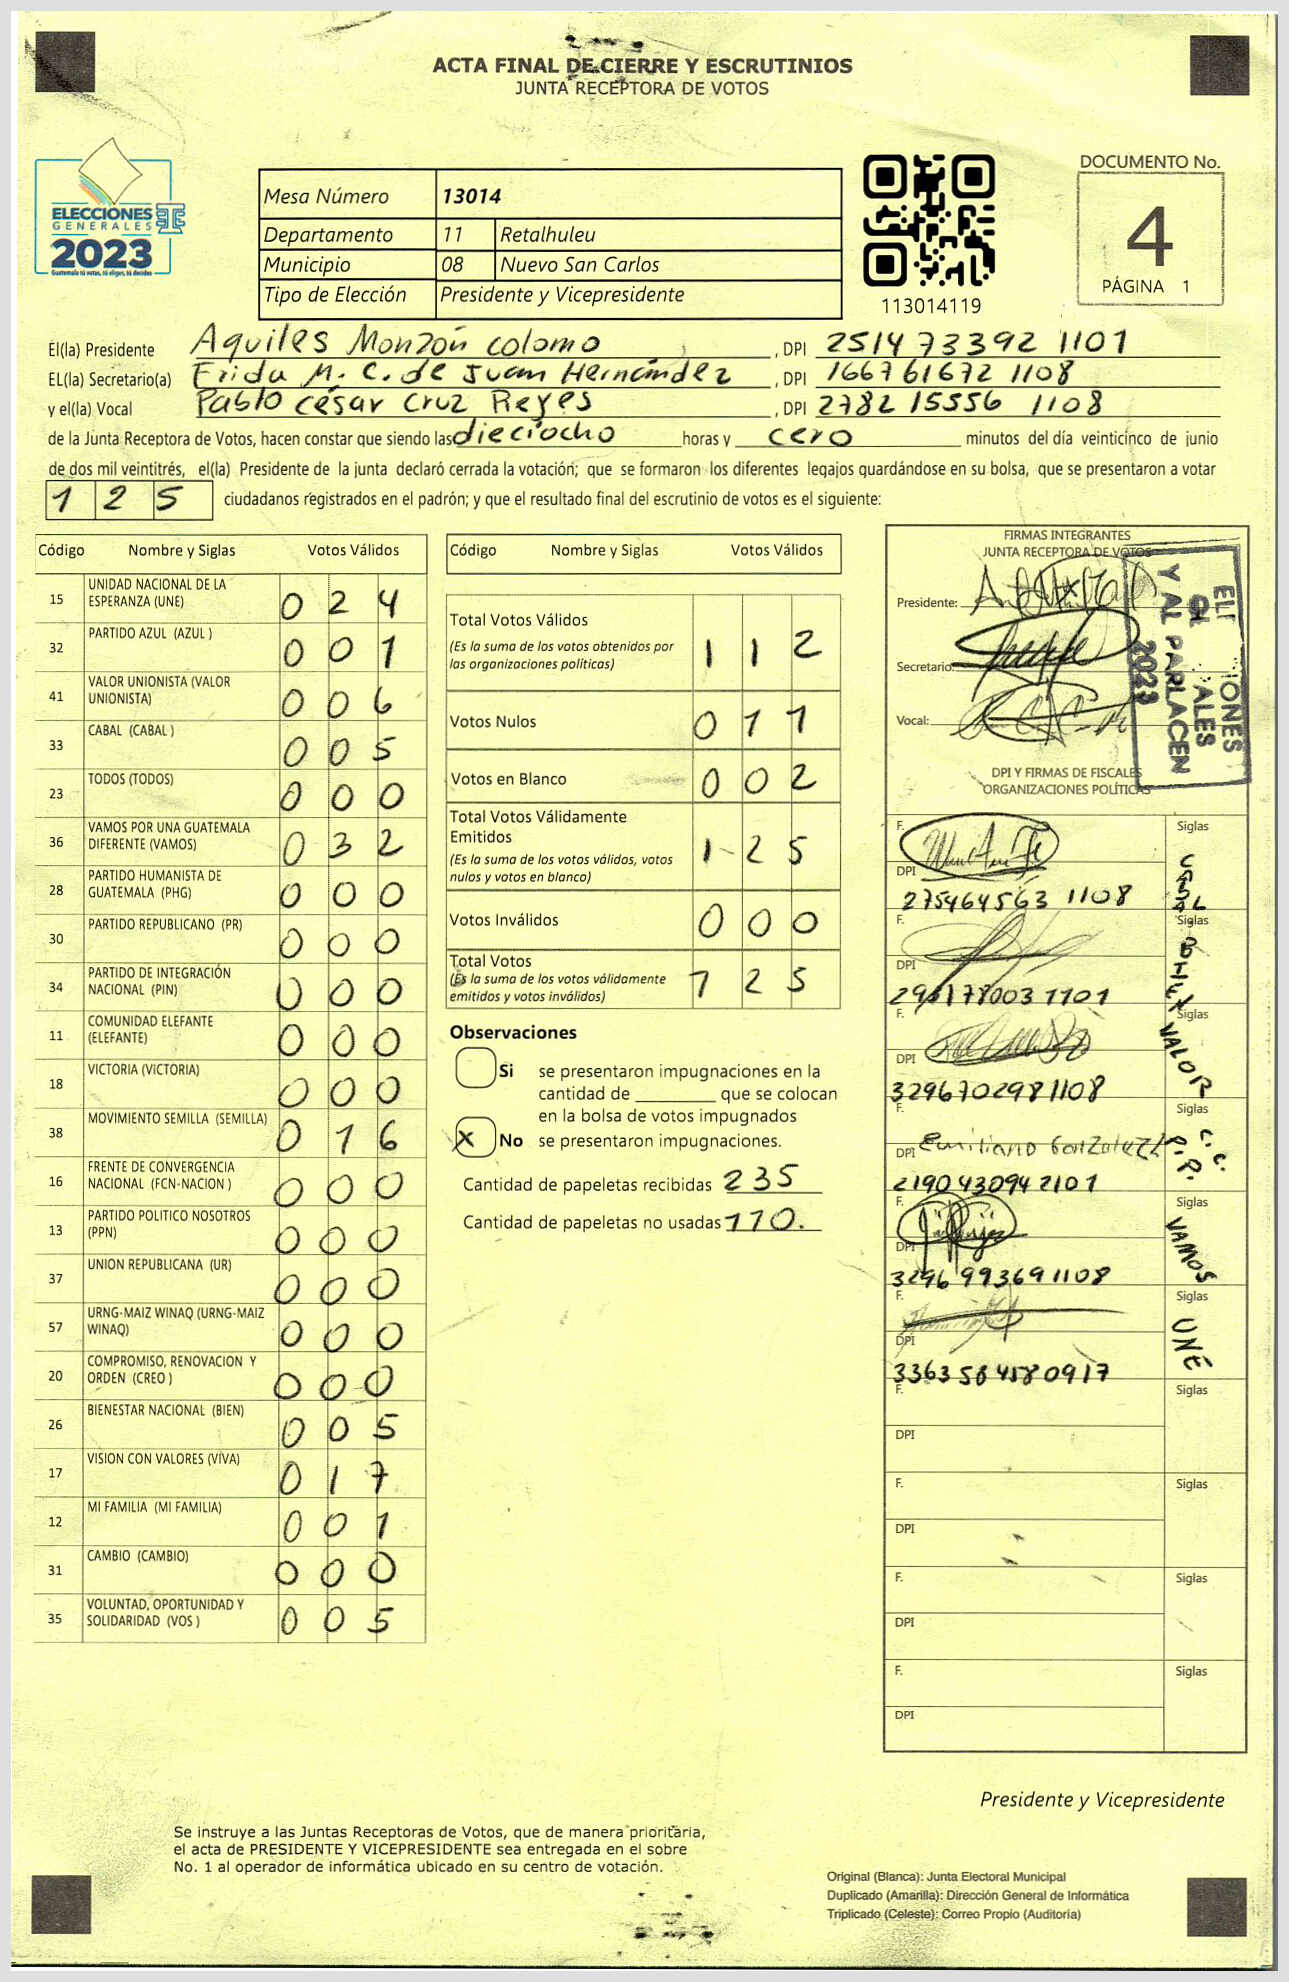 ACTA FINAL DE CIERRE Y ESCRUTINIOS
JUNTA RECEPTORA DE VOTOS
ELECCIONES
GENERALES
2023
Guatemala tú votas, tú eliges, tú decides
Mesa Número 13014
Departamento 11 Retalhuleu
Municipio 08 Nuevo San Carlos
Tipo de Elección Presidente y Vicepresidente
113014119
DOCUMENTO No.
4
PÁGINA 1
El(la) Presidente Aquiles Monzón Colomo , DPI 2514 73392 1101
EL(la) Secretario(a) Erida M. C. de Juan Hernández , DPI 166761672 1108
y el(la) Vocal Pablo César Cruz Reyes , DPI 2782 15556 1108
de la Junta Receptora de Votos, hacen constar que siendo las dieciocho horas y cero minutos del día veinticinco de junio
de dos mil veintitrés, el(la) Presidente de la junta declaró cerrada la votación; que se formaron los diferentes legajos guardándose en su bolsa, que se presentaron a votar
1 2 5 ciudadanos registrados en el padrón; y que el resultado final del escrutinio de votos es el siguiente:
Código Nombre y Siglas Votos Válidos
15 UNIDAD NACIONAL DE LA ESPERANZA (UNE) 0 2 4
32 PARTIDO AZUL (AZUL ) 0 0 1
41 VALOR UNIONISTA (VALOR UNIONISTA) 0 0 6
33 CABAL (CABAL ) 0 0 5
23 TODOS (TODOS) 0 0 0
36 VAMOS POR UNA GUATEMALA DIFERENTE (VAMOS) 0 3 2
28 PARTIDO HUMANISTA DE GUATEMALA (PHG) 0 0 0
30 PARTIDO REPUBLICANO (PR) 0 0 0
34 PARTIDO DE INTEGRACIÓN NACIONAL (PIN) 0 0 0
11 COMUNIDAD ELEFANTE (ELEFANTE) 0 0 0
18 VICTORIA (VICTORIA) 0 0 0
38 MOVIMIENTO SEMILLA (SEMILLA) 0 1 6
16 FRENTE DE CONVERGENCIA NACIONAL (FCN-NACION ) 0 0 0
13 PARTIDO POLITICO NOSOTROS (PPN) 0 0 0
37 UNION REPUBLICANA (UR) 0 0 0
57 URNG-MAIZ WINAQ (URNG-MAIZ WINAQ) 0 0 0
20 COMPROMISO, RENOVACION Y ORDEN (CREO ) 0 0 0
26 BIENESTAR NACIONAL (BIEN) 0 0 5
17 VISION CON VALORES (VIVA) 0 1 7
12 MI FAMILIA (MI FAMILIA) 0 0 1
31 CAMBIO (CAMBIO) 0 0 0
35 VOLUNTAD, OPORTUNIDAD Y SOLIDARIDAD (VOS ) 0 0 5
Código Nombre y Siglas Votos Válidos
Total Votos Válidos 1 1 2
(Es la suma de los votos obtenidos por
las organizaciones politicas)
Votos Nulos 0 1 1
Votos en Blanco 0 0 2
Total Votos Válidamente
Emitidos 1 2 5
(Es la suma de los votos válidos, votos
nulos y votos en blanco)
Votos Inválidos 0 0 0
Total Votos 1 2 5
(Es la suma de los votos válidamente
emitidos y votos inválidos)
Observaciones
Si se presentaron impugnaciones en la
cantidad de ________ que se colocan
en la bolsa de votos impugnados
X No se presentaron impugnaciones.
Cantidad de papeletas recibidas 235
Cantidad de papeletas no usadas 110.
FIRMAS INTEGRANTES
JUNTA RECEPTORA DE VOTOS
Presidente:
Secretario:
Vocal:
IONES
ALES
Y AL PARLACEN
2023
DPI Y FIRMAS DE FISCALES
ORGANIZACIONES POLÍTICAS
F. Siglas
DPI CABAL
275464563 1108
F. Siglas
DPI
F. Siglas
DPI VALOR
3296702981108
F. Siglas
DPI Emiliano Gonzalez
2190430942101
F. Siglas
DPI VAMOS
3296993691108
F. Siglas
DPI UNE
3363584580917
F. Siglas
DPI
F. Siglas
DPI
F. Siglas
DPI
F. Siglas
DPI
Presidente y Vicepresidente
Se instruye a las Juntas Receptoras de Votos, que de manera prioritaria,
el acta de PRESIDENTE Y VICEPRESIDENTE sea entregada en el sobre
No. 1 al operador de informática ubicado en su centro de votación.
Original (Blanca): Junta Electoral Municipal
Duplicado (Amarilla): Dirección General de Informática
Triplicado (Celeste): Correo Propio (Auditoría)